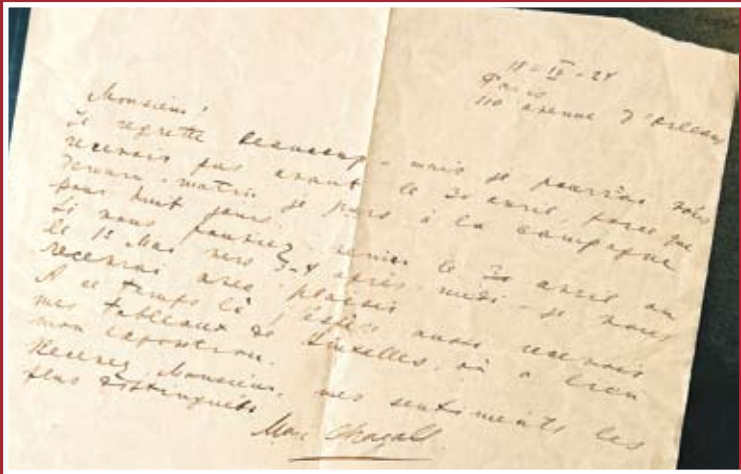 18 - IV - 24
Paris
110 avenue d'Orleans
Monsieur,
Je regrette beaucoup - mais je pourrais vous
recevois pas avant le 30 avril, parce que
demain matin je pars à la campagne
pour huit jours.
Si vous pouviez venir le 30 avril ou
le 1er Mai vers 3-4 après-midi - je vous
recevrai avec plaisir
A ce temps là j'espère aussi recevois
mes tableaux de Bruxelles, où a lieu
mon exposition.
Recevez, Monsieur, mes sentiments les
plus distingués
Marc Chagall